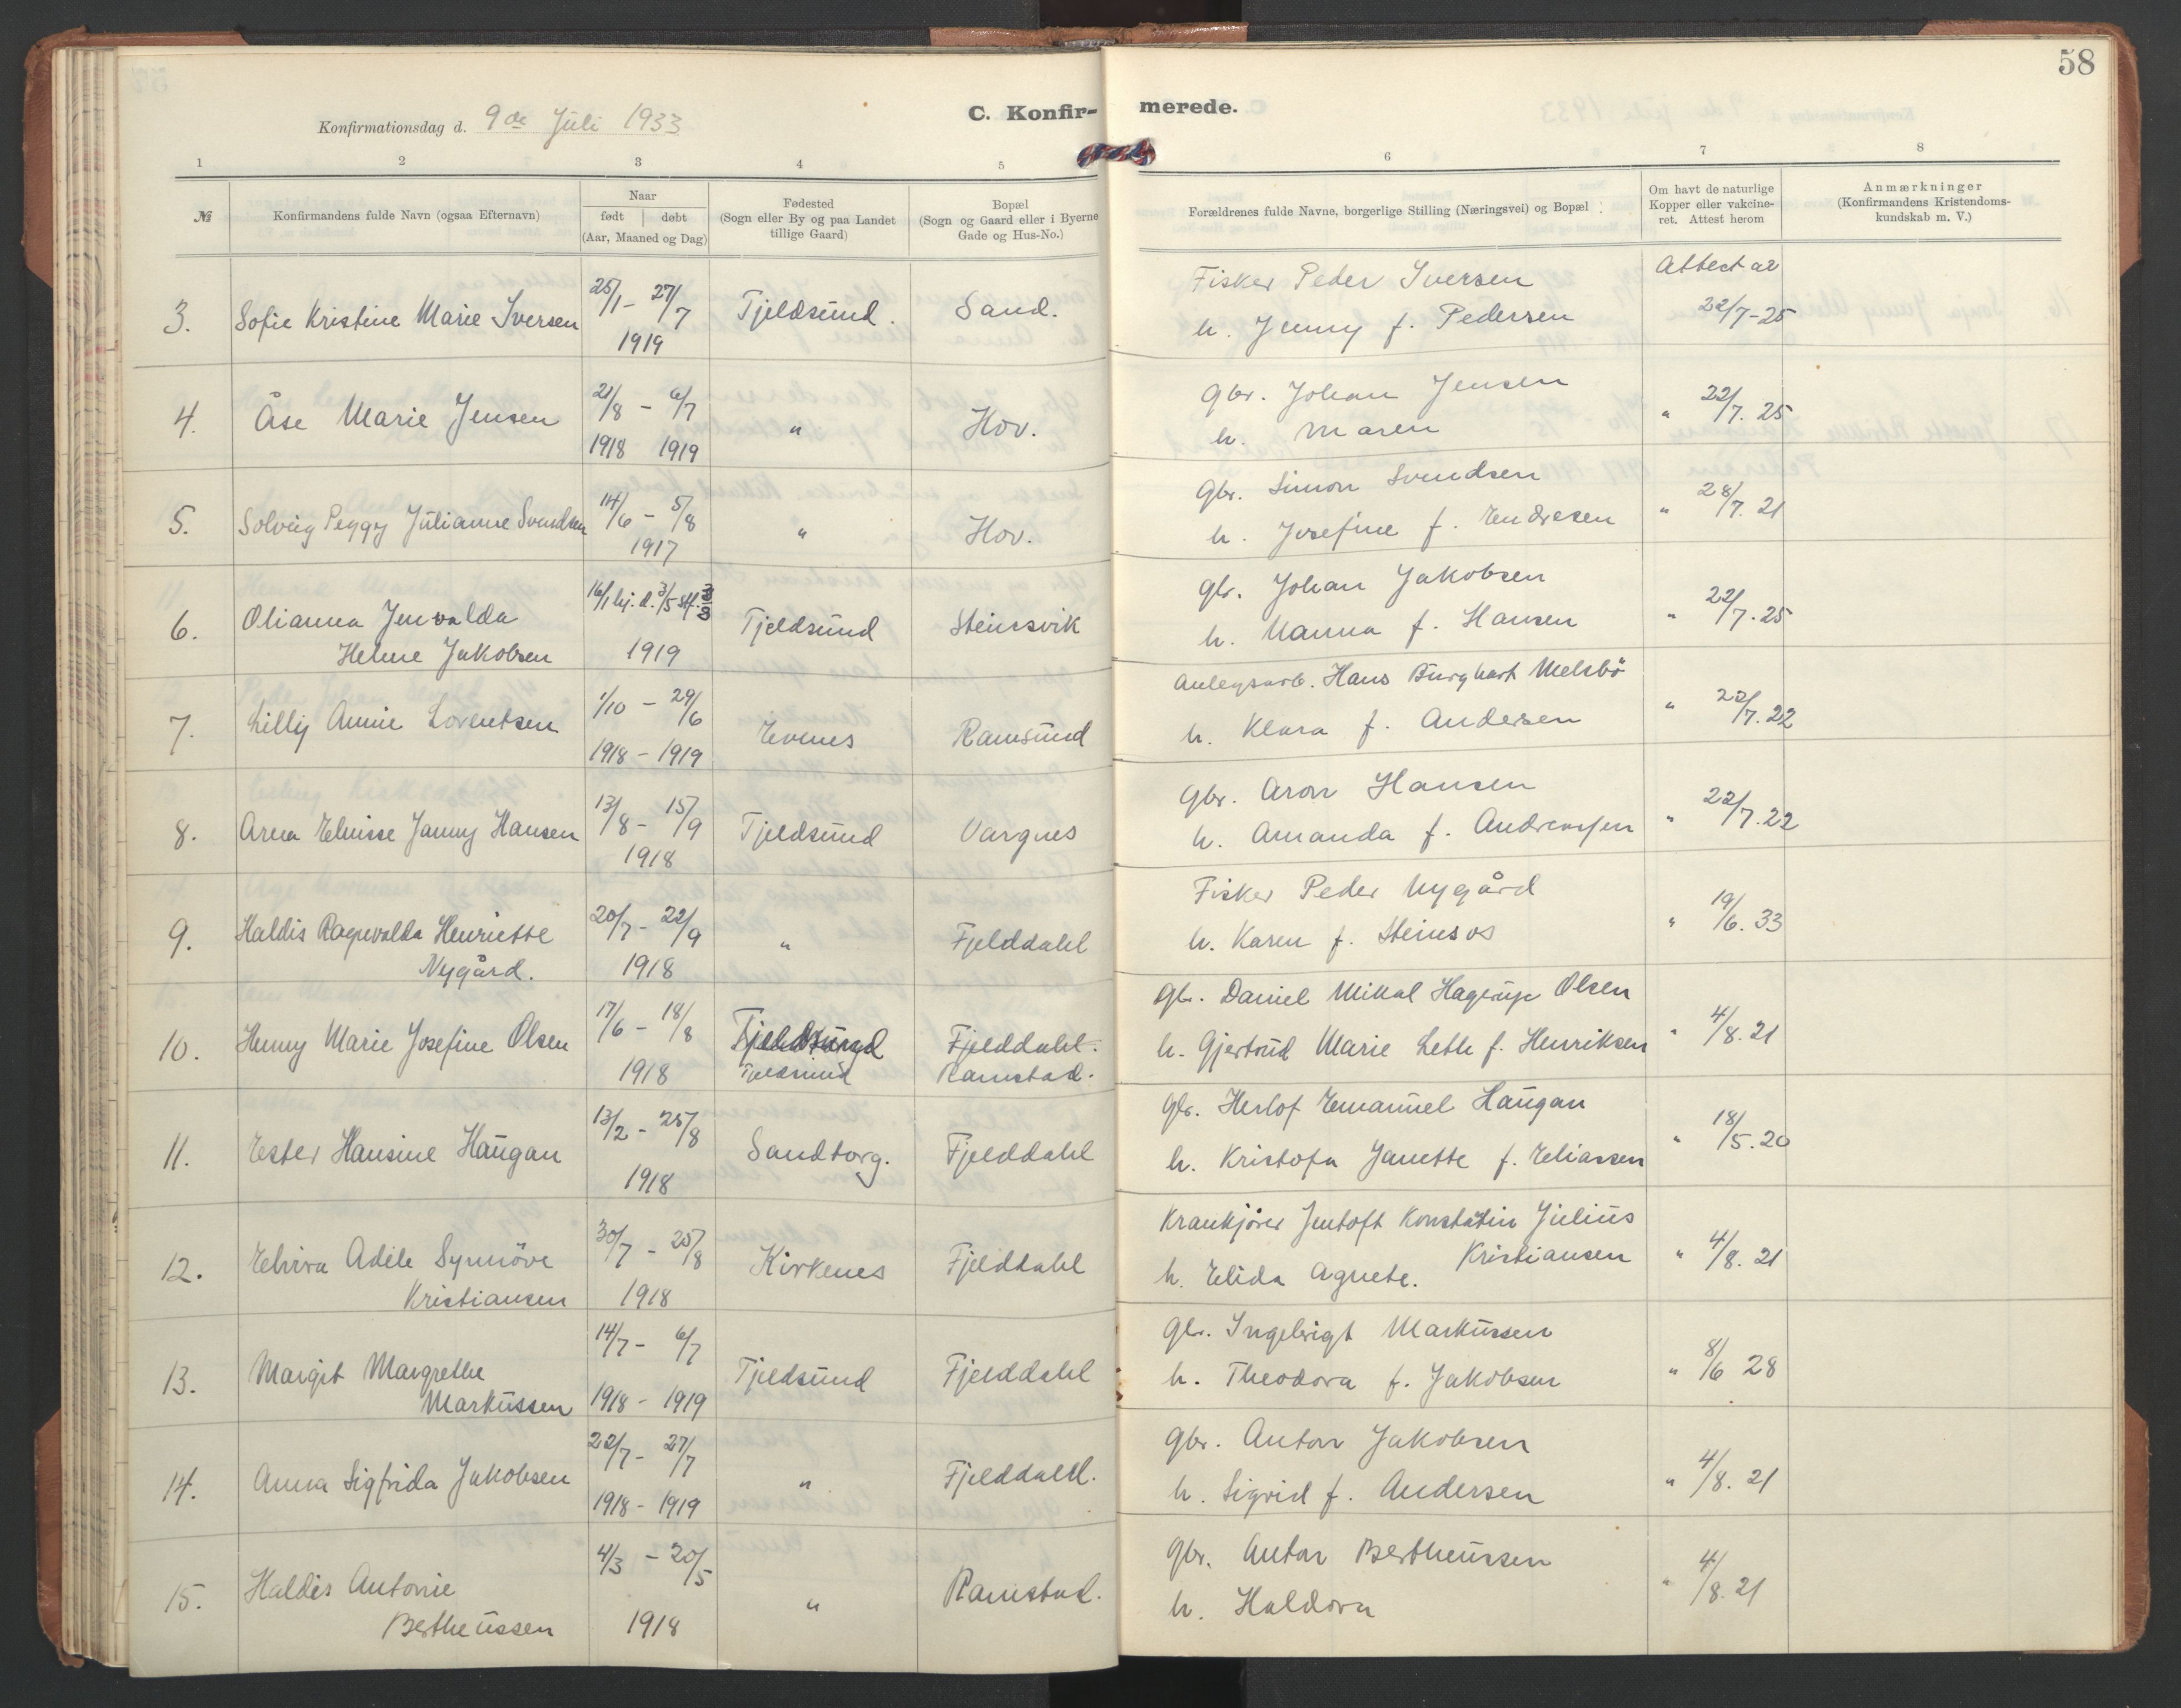 58
Konfirmationsdag d. 9de Juli 1933
C. Konfir-merede.
1 2 3 4 5 6 7 8
№
Konfirmandens fulde Navn (ogsaa Efternavn)
Naar
født døbt
(Aar, Maaned og Dag)
Fødested
(Sogn eller By og paa Landet
tillige Gaard)
Bopæl
(Sogn og Gaard eller i Byerne
Gade og Hus-No.)
Forældrenes fulde Navne, borgerlige Stilling (Næringsvei) og Bopæl
Om havt de naturlige
Kopper eller vakcine-
ret. Attest herom
Anmærkninger
(Konfirmandens Kristendoms-
kundskab m. V.)
3. Sofie Kristine Marie Iversen 25/1 - 27/7 1919 Tjeldsund. Sand.
Fisker Peder Iversen
h. Jenny f. Pedersen
Attest av 22/7-25
4. Åse Marie Jensen 21/8 - 6/7 1918 1919 " Hov.
Gbr. Johan Jensen
h. Maren
" 22/7. 25
5. Solveig Peggy Julianne Svendsen 14/6 - 5/8 1917 " Hov.
Gbr. Simon Svendsen
h. Josefine f. Endresen
" 28/7. 21
6. Olianna Jenvalda
Helene Jakobsen
16/1 hj. d. 3/5 st. 3/8 1919 Tjeldsund Steinsvik
Gbr. Johan Jakobsen
h. Nanna f. Hansen
" 22/7. 25
7. Lilly Annie Lorentsen 1/10 - 29/6 1918 - 1919 Evenes Ramsund
Anlegsarb. Hans Burghart Melsbö
h. Klara f. Andersen
" 22/7. 22
8. Arna Elvisse Janny Hansen 13/8 - 15/9 1918 Tjeldsund Vargnes
Gbr. Aron Hansen
h. Amanda f. Andreassen
" 22/7. 22
9. Haldis Ragnvalda Henriette
Nygård.
20/7 - 22/9 1918 " Fjelddahl
Fisker Peder Nygård
h. Karen f. Steinsos
" 19/6. 33
10. Henny Marie Josefine Olsen 17/6 - 18/8 1918 Tjeldsund
Tjeldsund
Fjelddahl.
Ramstad.
Gbr. Daniel Mikal Hagerup Olsen
h. Gjertrud Marie Leth f. Henriksen
" 4/8. 21
11. Ester Hansine Haugan 13/2 - 25/8 1918 Sandtorg. Fjelddahl
Gbr. Herlof Emanuel Haugan
h. Kristofa Janette f. Eliassen
" 18/5. 20
12. Elvira Adele Synnöve
Kristiansen
30/7 - 25/8 1918 Kirkenes Fjelddahl
Krankjörer Jentoft Konstatin Julius
Kristiansen
h. Elida Agnete.
" 4/8. 21
13. Margit Margrethe
Markussen
14/7 - 6/7 1918 - 1919 Tjeldsund Fjelddahl
Gbr. Ingebrigt Markussen
h. Theodora f. Jakobsen
" 8/6 28
14. Anna Sigfrida Jakobsen 22/7 - 27/7 1918 - 1919 " Fjelddahl.
Gbr. Anton Jakobsen
h. Sigrid f. Andersen
" 4/8. 21
15. Haldis Antonie
Bertheussen
4/3 - 20/5 1918 " Ramstad.
Gbr. Anton Bertheussen
h. Haldora
" 4/8. 21